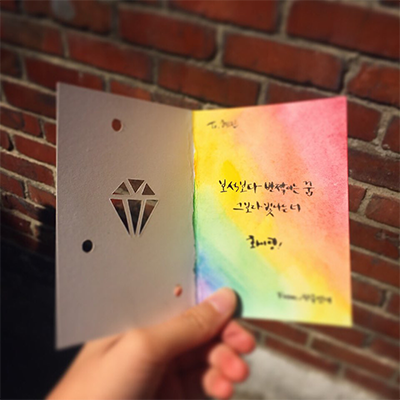 To. 혜진
보석보다 반짝이는 꿈
그보다 빛나는 너
화이팅!
From.